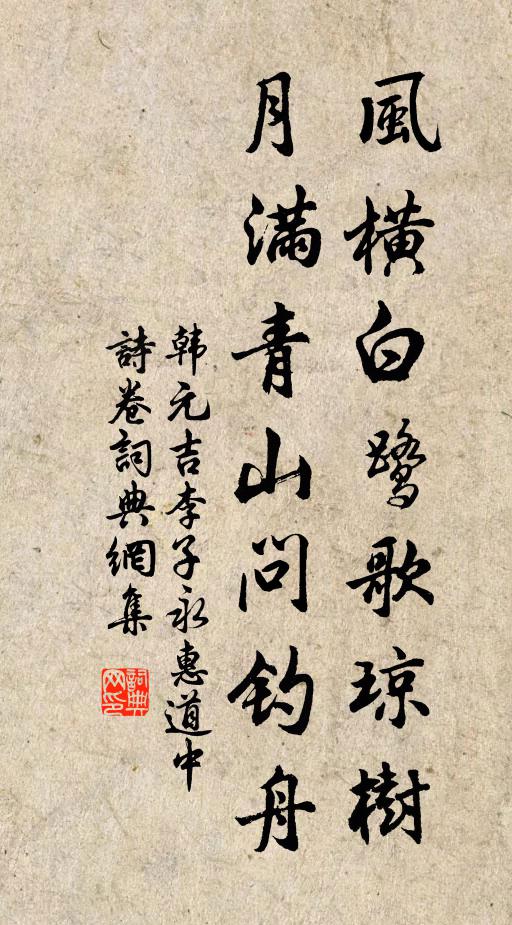 風橫白鷺歌琼樹
月滿青山問釣舟
韩元吉李子永惠道中
詩卷詞典網集
詞典
网印